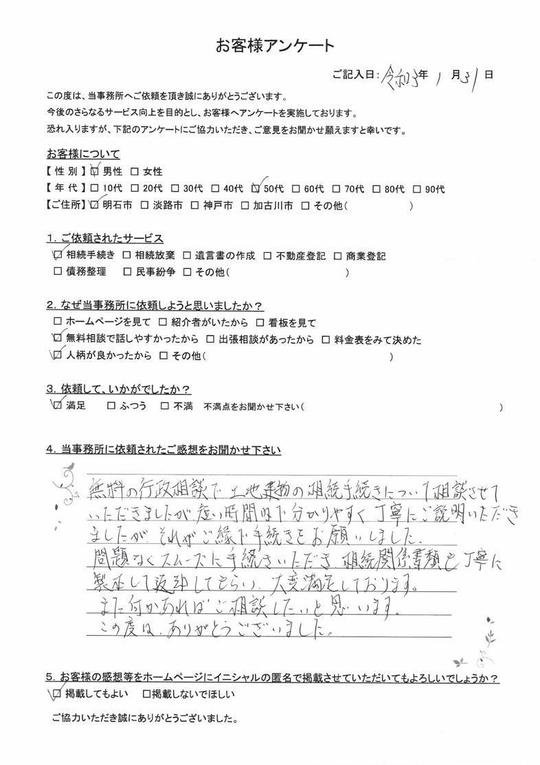 お客様アンケート
ご記入日：令和3年 1 月 31 日
この度は、当事務所へご依頼を頂き誠にありがとうございます。
今後のさらなるサービス向上を目的とし、お客様へアンケートを実施しております。
恐れ入りますが、下記のアンケートにご協力いただき、ご意見をお聞かせ願えますと幸いです。
お客様について
【 性 別 】☑ 男性 □ 女性
【 年 代 】□ 10代 □ 20代 □ 30代 □ 40代 ☑ 50代 □ 60代 □ 70代 □ 80代 □ 90代
【ご住所】☑ 明石市 □ 淡路市 □ 神戸市 □ 加古川市 □ その他( )
1．ご依頼されたサービス
☑ 相続手続き □ 相続放棄 □ 遺言書の作成 □ 不動産登記 □ 商業登記
□ 債務整理 □ 民事紛争 □ その他( )
2．なぜ当事務所に依頼しようと思いましたか？
□ ホームページを見て □ 紹介者がいたから □ 看板を見て
☑ 無料相談で話しやすかったから □ 出張相談があったから □ 料金表をみて決めた
☑ 人柄が良かったから □ その他( )
3．依頼して、いかがでしたか？
☑ 満足 □ ふつう □ 不満 不満点をお聞かせ下さい( )
4．当事務所に依頼されたご感想をお聞かせ下さい
無料の行政相談で土地建物の相続手続きについて相談させて
いただきましたが短い時間の下分かりやすく丁寧にご説明いただき
ましたが それがご縁で手続きをお願いしました。
問題なくスムーズに手続きいただき 相続関係書類も丁寧に
製本して返却してもらい、大変満足しております。
また何かあればご相談したいと思います。
この度は、ありがとうございました。
5．お客様の感想等をホームページにイニシャルの匿名で掲載させていただいてもよろしいでしょうか？
☑ 掲載してもよい □掲載しないでほしい
ご協力いただき誠にありがとうございました。